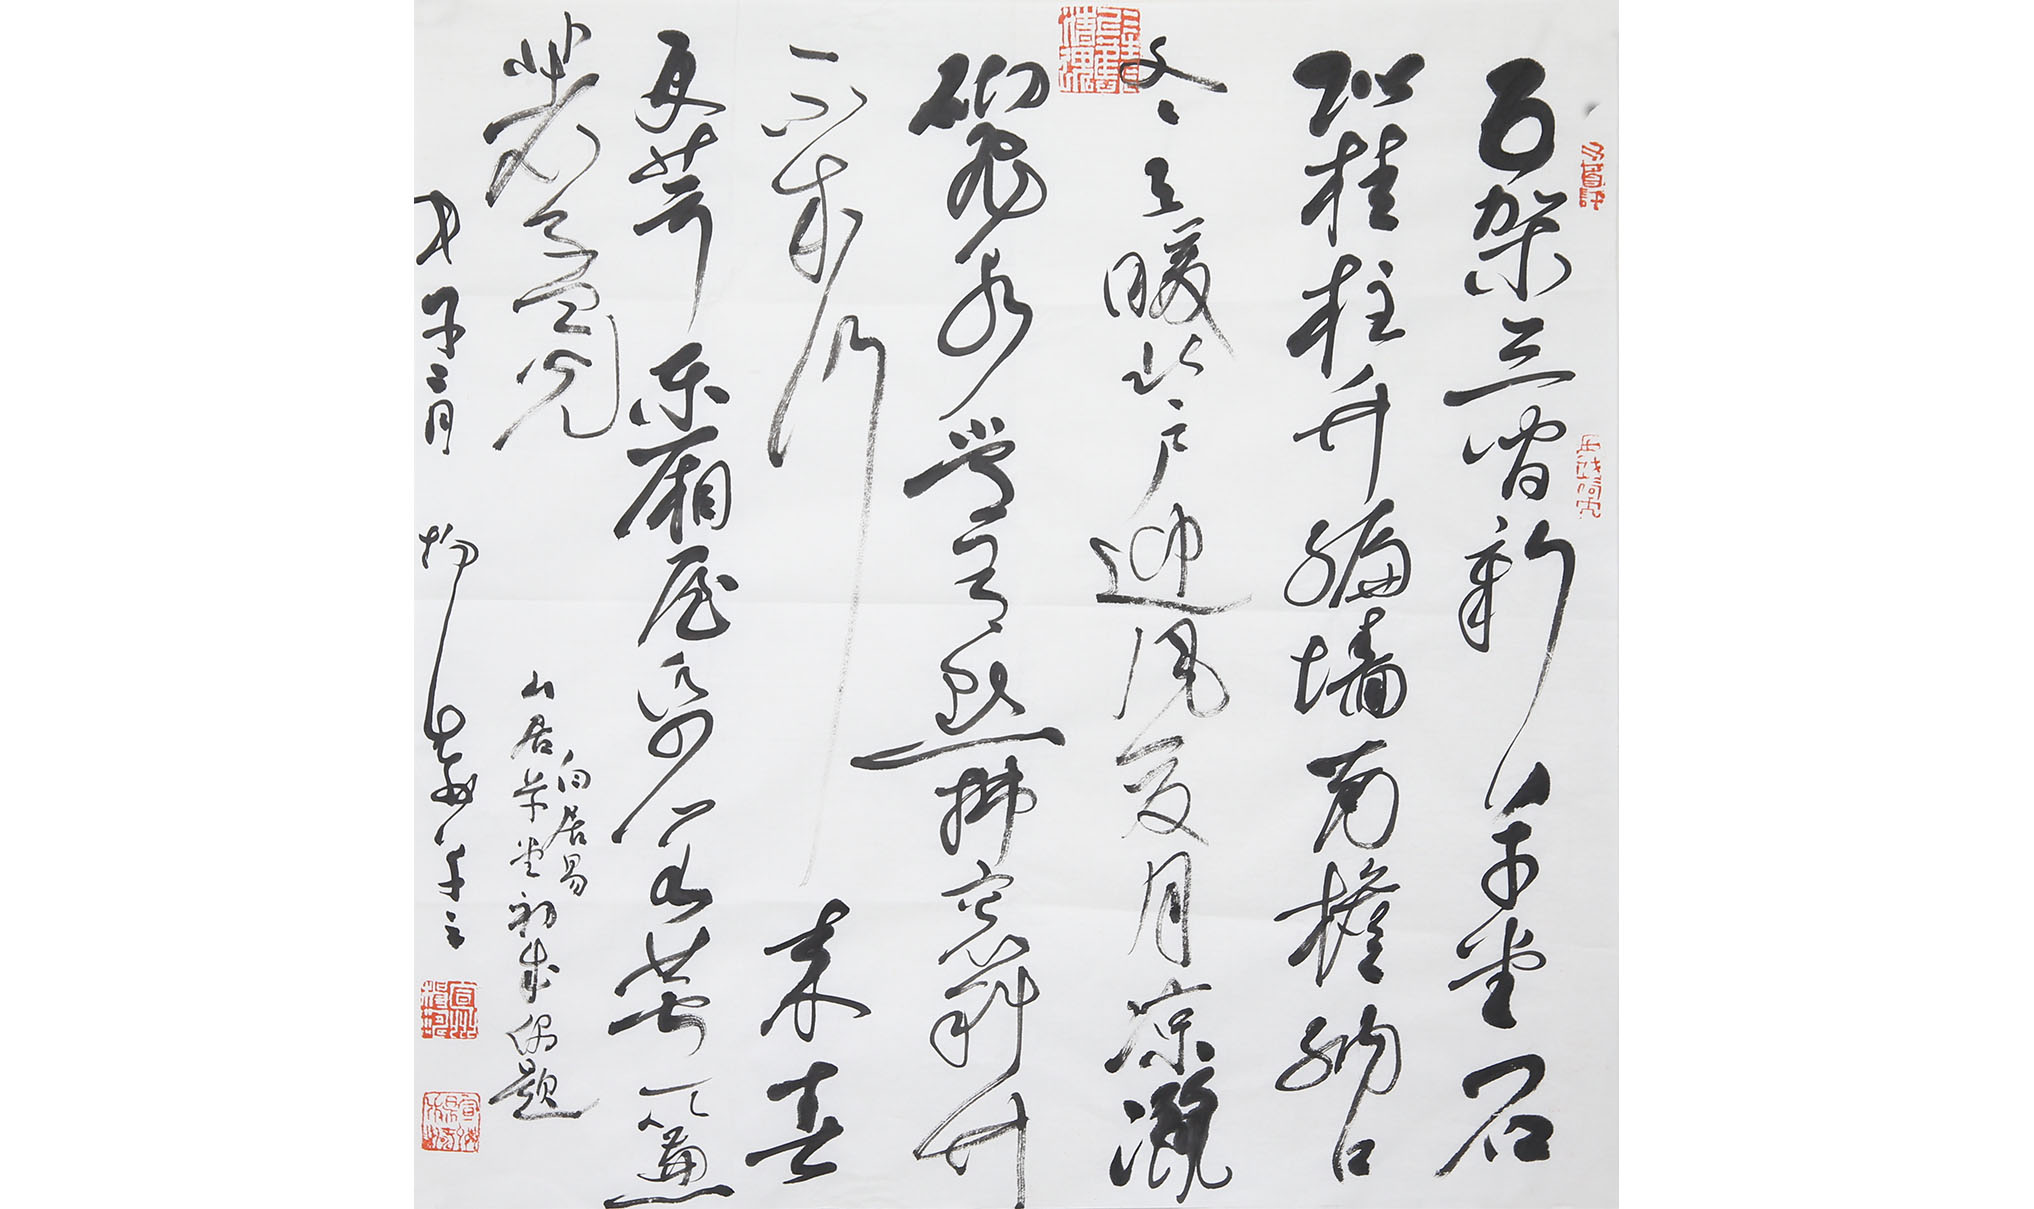 五架三间新草堂石
阶桂柱竹编墙南檐纳日
冬天暖北户迎风夏月凉灑
砌飞泉才有点拂窗斜竹
不成行来春
更葺东厢屋纸阁芦簾
著孟光
白居易
山居草堂初成偶题